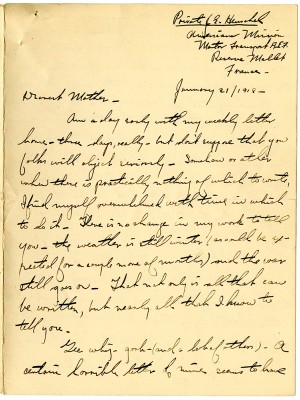 Private C. G. Henschel
American Mission
Motor Transport Dept
Reserve Mallet
France -
January 21/1918 -
Dearest Mother -
Am a day early with my weekly letter
home - three days, really - but don't suppose that you
folks will object seriously. Somehow or other
when there is practically nothing of which to write,
I find myself overwhelmed with time in which
to do it. There is no change in my work to tell
you - the weather is still winter (as could be ex-
pected for a couple more of months) and the war
still goes on. That not only is all that can
be written, but nearly all that I know to
tell you.
Gee whiz - gosh - (and a lot of others) - A
certain horrible letter of mine seems to have